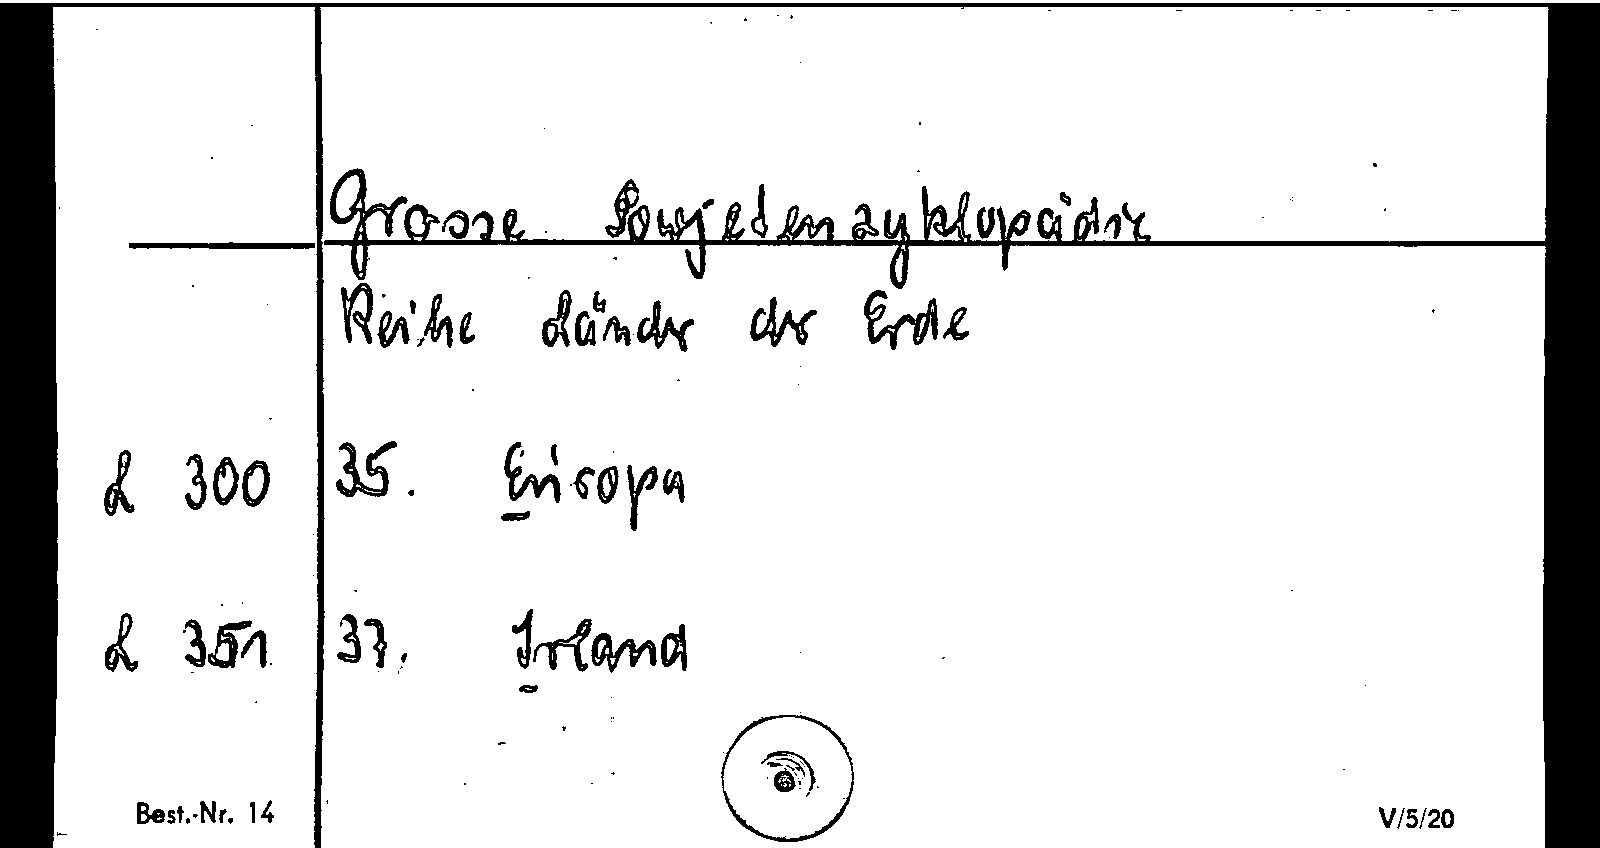 Grosse Sowjetenzyklopädie
Reihe Länder der Erde
L 300 35. Europa
L 351 37. Irland
Best.-Nr. 14 V/5/20